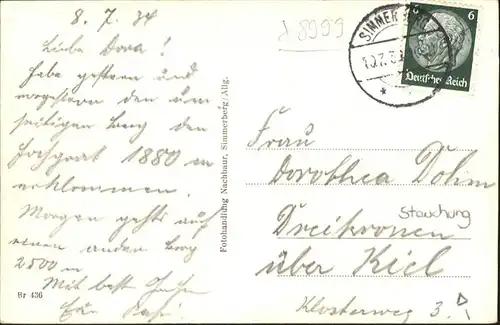 8. 7. 34
Liebe Dora!
Habe gestern und
vorgestern den um
seitigen Berg den
Hochgrat 1880 m
erklommen.
Morgen gehts auf
einen andern Berg
2500 m
Mit best
Br 436
Fotohandlung Nachbaur, Simmerberg/Allg.
d 8999
SIMMERBERG
10.7.3
6
Deutsches Reich
Frau
Dorothea Dohm
Dreikronen
Stauchung
über Kiel
Klosterweg 3.